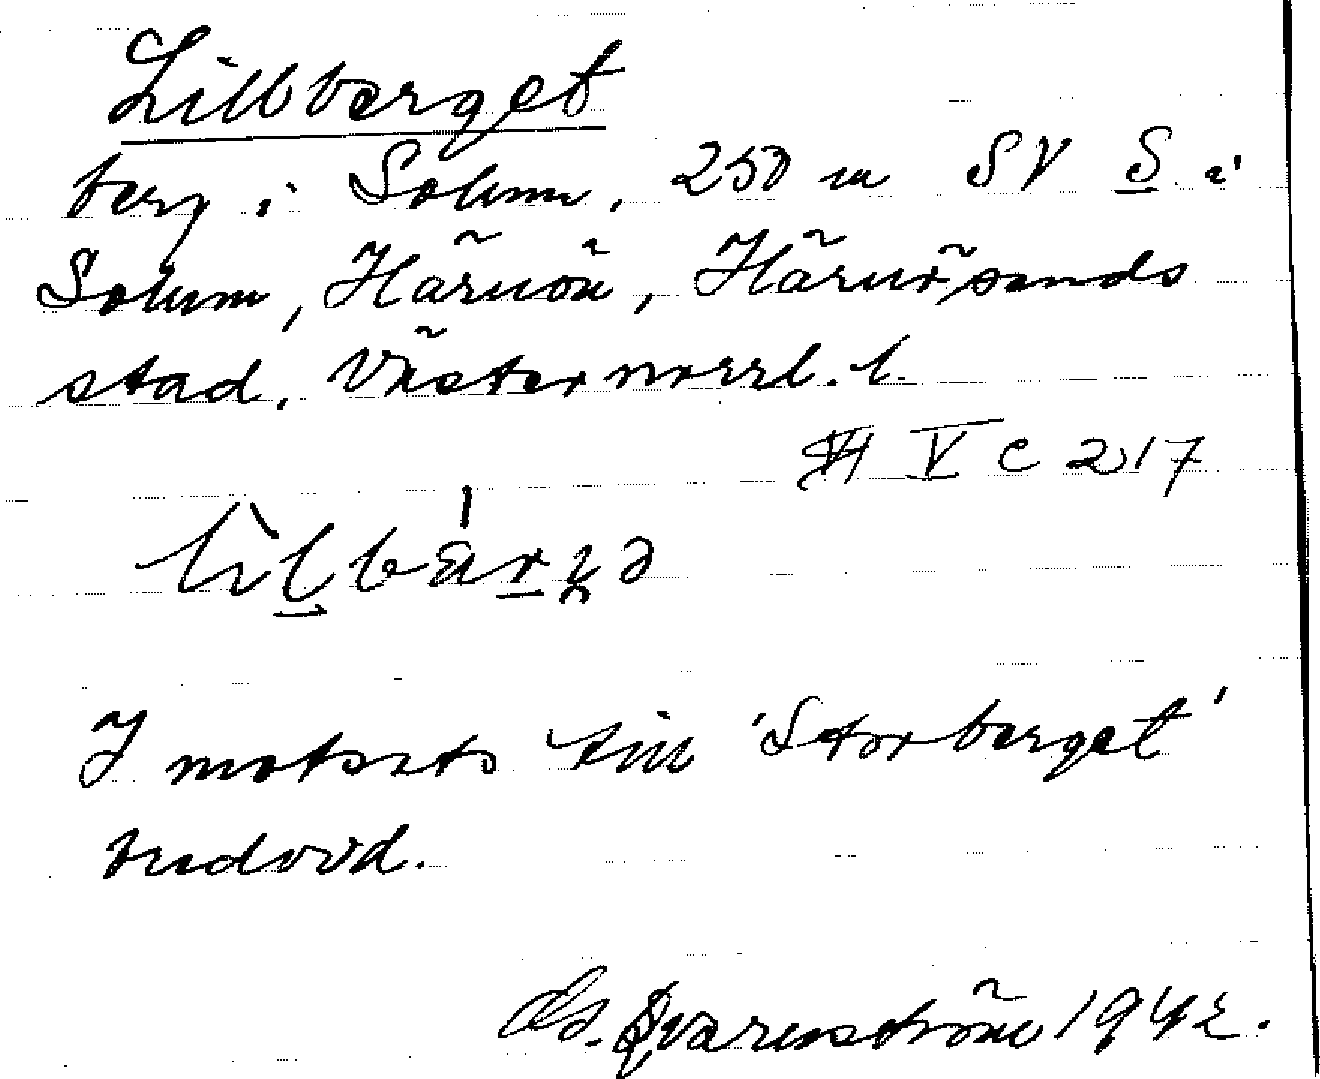 Lillberget
berg i Solum, 250 m SV S i
Solum, Härnön, Härnösands
stad, Västernorrl. l.
V c 217
I motsats till 'Storberget'
huvudord.
Qvarnström 1942.